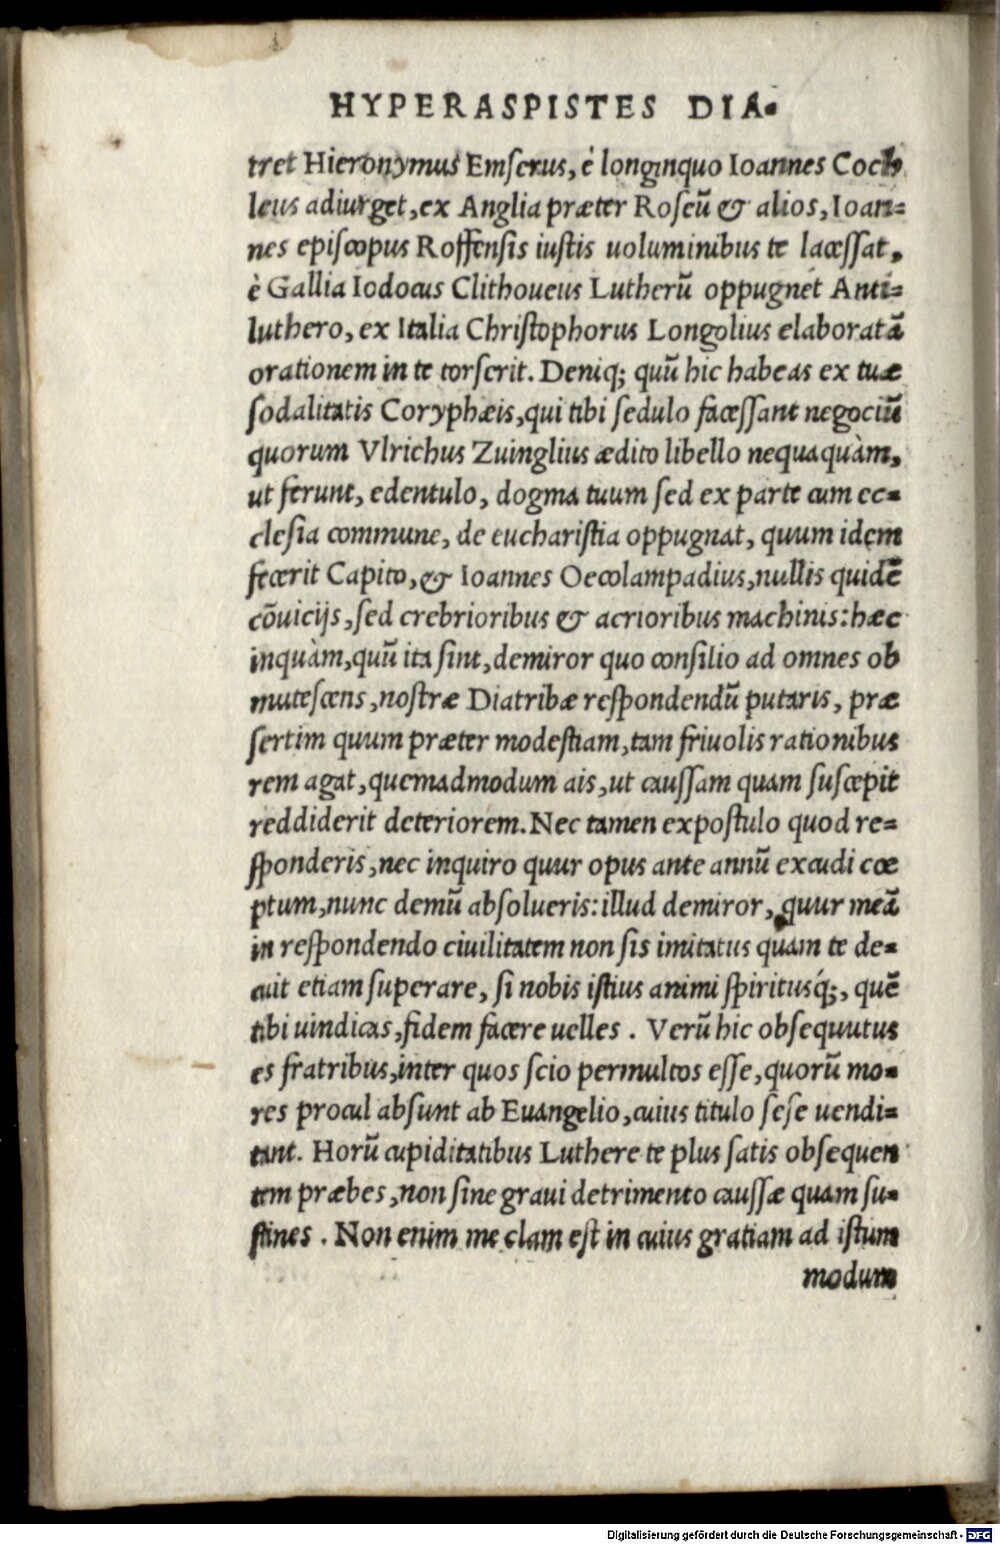 HYPERASPISTES DIA-
tret Hieronymus Emſerus, è longinquo Ioannes Coch
leus adiurget, ex Anglia præter Roſeū & alios, Ioan=
nes epiſcopus Roffenſis iuſtis uoluminibus te laceſſat,
è Gallia Iodocus Clithoueus Lutherū oppugnet Anti=
luthero, ex Italia Chriſtophorus Longolius elaboratā
orationem in te torſerit. Deniq; quū hic habeas ex tuæ
ſodalitatis Coryphæis, qui tibi ſedulo faceſſant negociū
quorum Vlrichus Zuinglius ædito libello nequaquàm,
ut ferunt, edentulo, dogma tuum ſed ex parte cum ec=
cleſia commune, de euchariſtia oppugnat, quum idem
fecerit Capito, & Ioannes Oecolampadius, nullis quidē
cōuicijs, ſed crebrioribus & acrioribus machinis: hæc
inquàm, quū ita ſint, demiror quo conſilio ad omnes ob
muteſcens, noſtræ Diatribæ reſpondendū putaris, præ
ſertim quum præter modeſtiam, tam friuolis rationibus
rem agat, quemadmodum ais, ut cauſſam quam ſuſcepit
reddiderit deteriorem. Nec tamen expoſtulo quod re=
ſponderis, nec inquiro quur opus ante annū excudi cœ
ptum, nunc demū abſolueris: illud demiror, quur meā
in reſpondendo ciuilitatem non ſis imitatus quam te de=
cuit etiam ſuperare, ſi nobis iſtius animi ſpiritusq́;, quē
tibi uindicas, fidem facere uelles . Verū hic obſequutus
es fratribus, inter quos ſcio permultos eſſe, quorū mo=
res procul abſunt ab Euangelio, cuius titulo ſeſe uendi=
tant. Horū cupiditatibus Luthere te plus ſatis obſequen
tem præbes, non ſine graui detrimento cauſſæ quam ſu=
ſtines . Non enim me clam eſt in cuius gratiam ad iſtum
modum
Digitalisierung gefördert durch die Deutsche Forschungsgemeinschaft - DFG